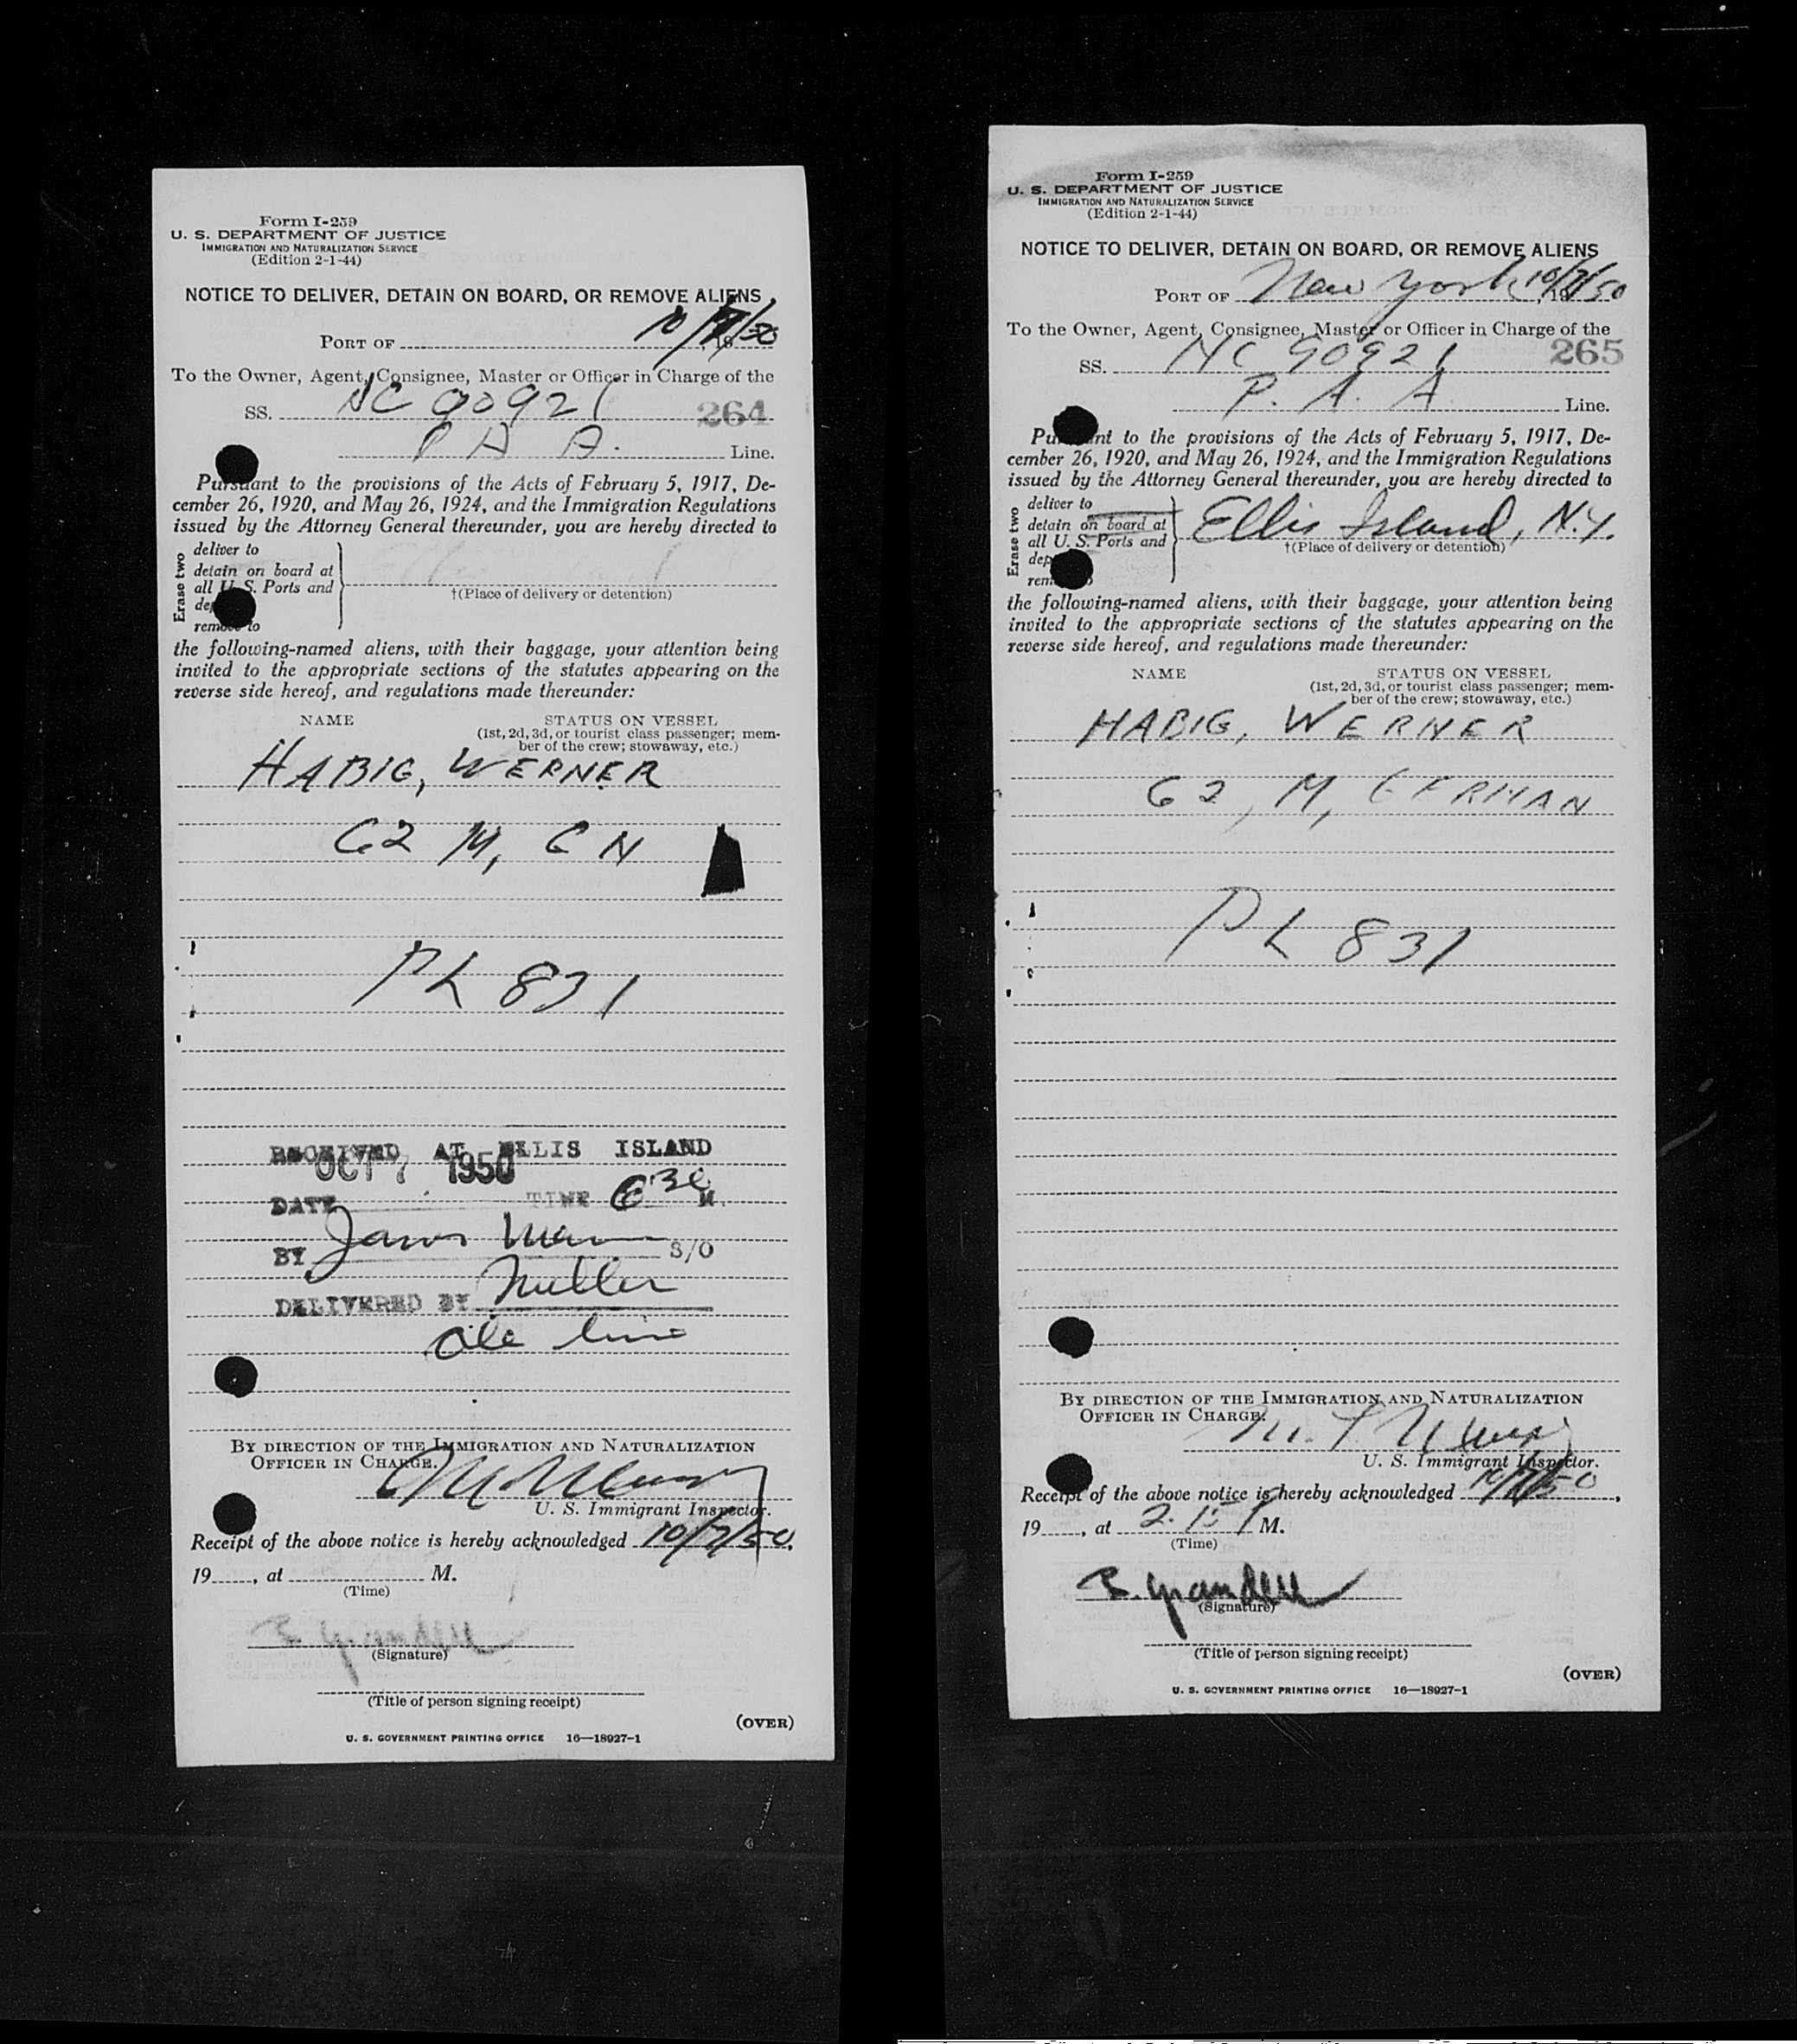 Form I-259
U. S. DEPARTMENT OF JUSTICE
IMMIGRATION AND NATURALIZATION SERVICE
(Edition 2-1-44)
NOTICE TO DELIVER, DETAIN ON BOARD, OR REMOVE ALIENS
10/7/50
PORT OF , 19
To the Owner, Agent, Consignee, Master or Officer in Charge of the
SS. NC 90921 264
P A A. Line.
Pursuant to the provisions of the Acts of February 5, 1917, De-
cember 26, 1920, and May 26, 1924, and the Immigration Regulations
issued by the Attorney General thereunder, you are hereby directed to
Erase two
deliver to
detain on board at
all U. S. Ports and
dep
remove to
†(Place of delivery or detention)
the following-named aliens, with their baggage, your attention being
invited to the appropriate sections of the statutes appearing on the
reverse side hereof, and regulations made thereunder:
NAME STATUS ON VESSEL
(1st, 2d, 3d, or tourist class passenger; mem-
ber of the crew; stowaway, etc.)
HABIG, WERNER
62 M,
PL 831
RECEIVED AT ELLIS ISLAND
OCT 7 1950
DATE TIME 6 30 M.
BY S/O
DELIVERED BY
BY DIRECTION OF THE IMMIGRATION AND NATURALIZATION
OFFICER IN CHARGE.
U. S. Immigrant Inspector.
Receipt of the above notice is hereby acknowledged 10/7/50,
19 , at M.
(Time)
(Signature)
(Title of person signing receipt)
(OVER)
U. S. GOVERNMENT PRINTING OFFICE 16—18927-1
Form I-259
U. S. DEPARTMENT OF JUSTICE
IMMIGRATION AND NATURALIZATION SERVICE
(Edition 2-1-44)
NOTICE TO DELIVER, DETAIN ON BOARD, OR REMOVE ALIENS
PORT OF New York 10/7/50 , 19
To the Owner, Agent, Consignee, Master or Officer in Charge of the
SS. NC 90921 265
P. A. A Line.
Pursuant to the provisions of the Acts of February 5, 1917, De-
cember 26, 1920, and May 26, 1924, and the Immigration Regulations
issued by the Attorney General thereunder, you are hereby directed to
Erase two
deliver to
detain on board at
all U. S. Ports and
dep
rem
Ellis Island, N.Y.
†(Place of delivery or detention)
the following-named aliens, with their baggage, your attention being
invited to the appropriate sections of the statutes appearing on the
reverse side hereof, and regulations made thereunder:
NAME STATUS ON VESSEL
(1st, 2d, 3d, or tourist class passenger; mem-
ber of the crew; stowaway, etc.)
HABIG, WERNER
62, M, GERMAN
PL 831
BY DIRECTION OF THE IMMIGRATION AND NATURALIZATION
OFFICER IN CHARGE.
U. S. Immigrant Inspector.
Receipt of the above notice is hereby acknowledged 10/7/50,
19 , at 2.15 P M.
(Time)
(Signature)
(Title of person signing receipt)
(OVER)
U. S. GOVERNMENT PRINTING OFFICE 16—18927-1